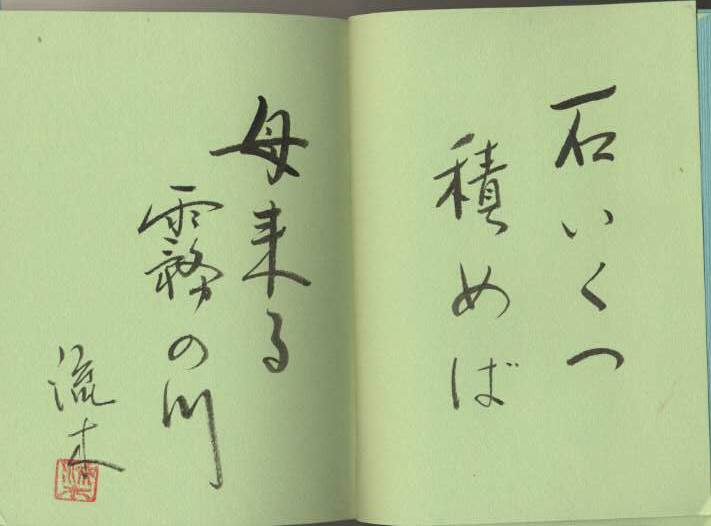 石いくつ
積めば
母来る
霧の川
流木